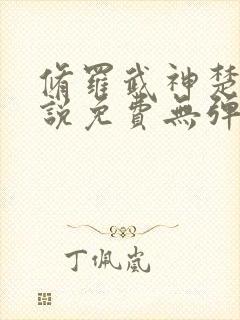 脩羅武神楚
說免費無彈
丁佩嵐